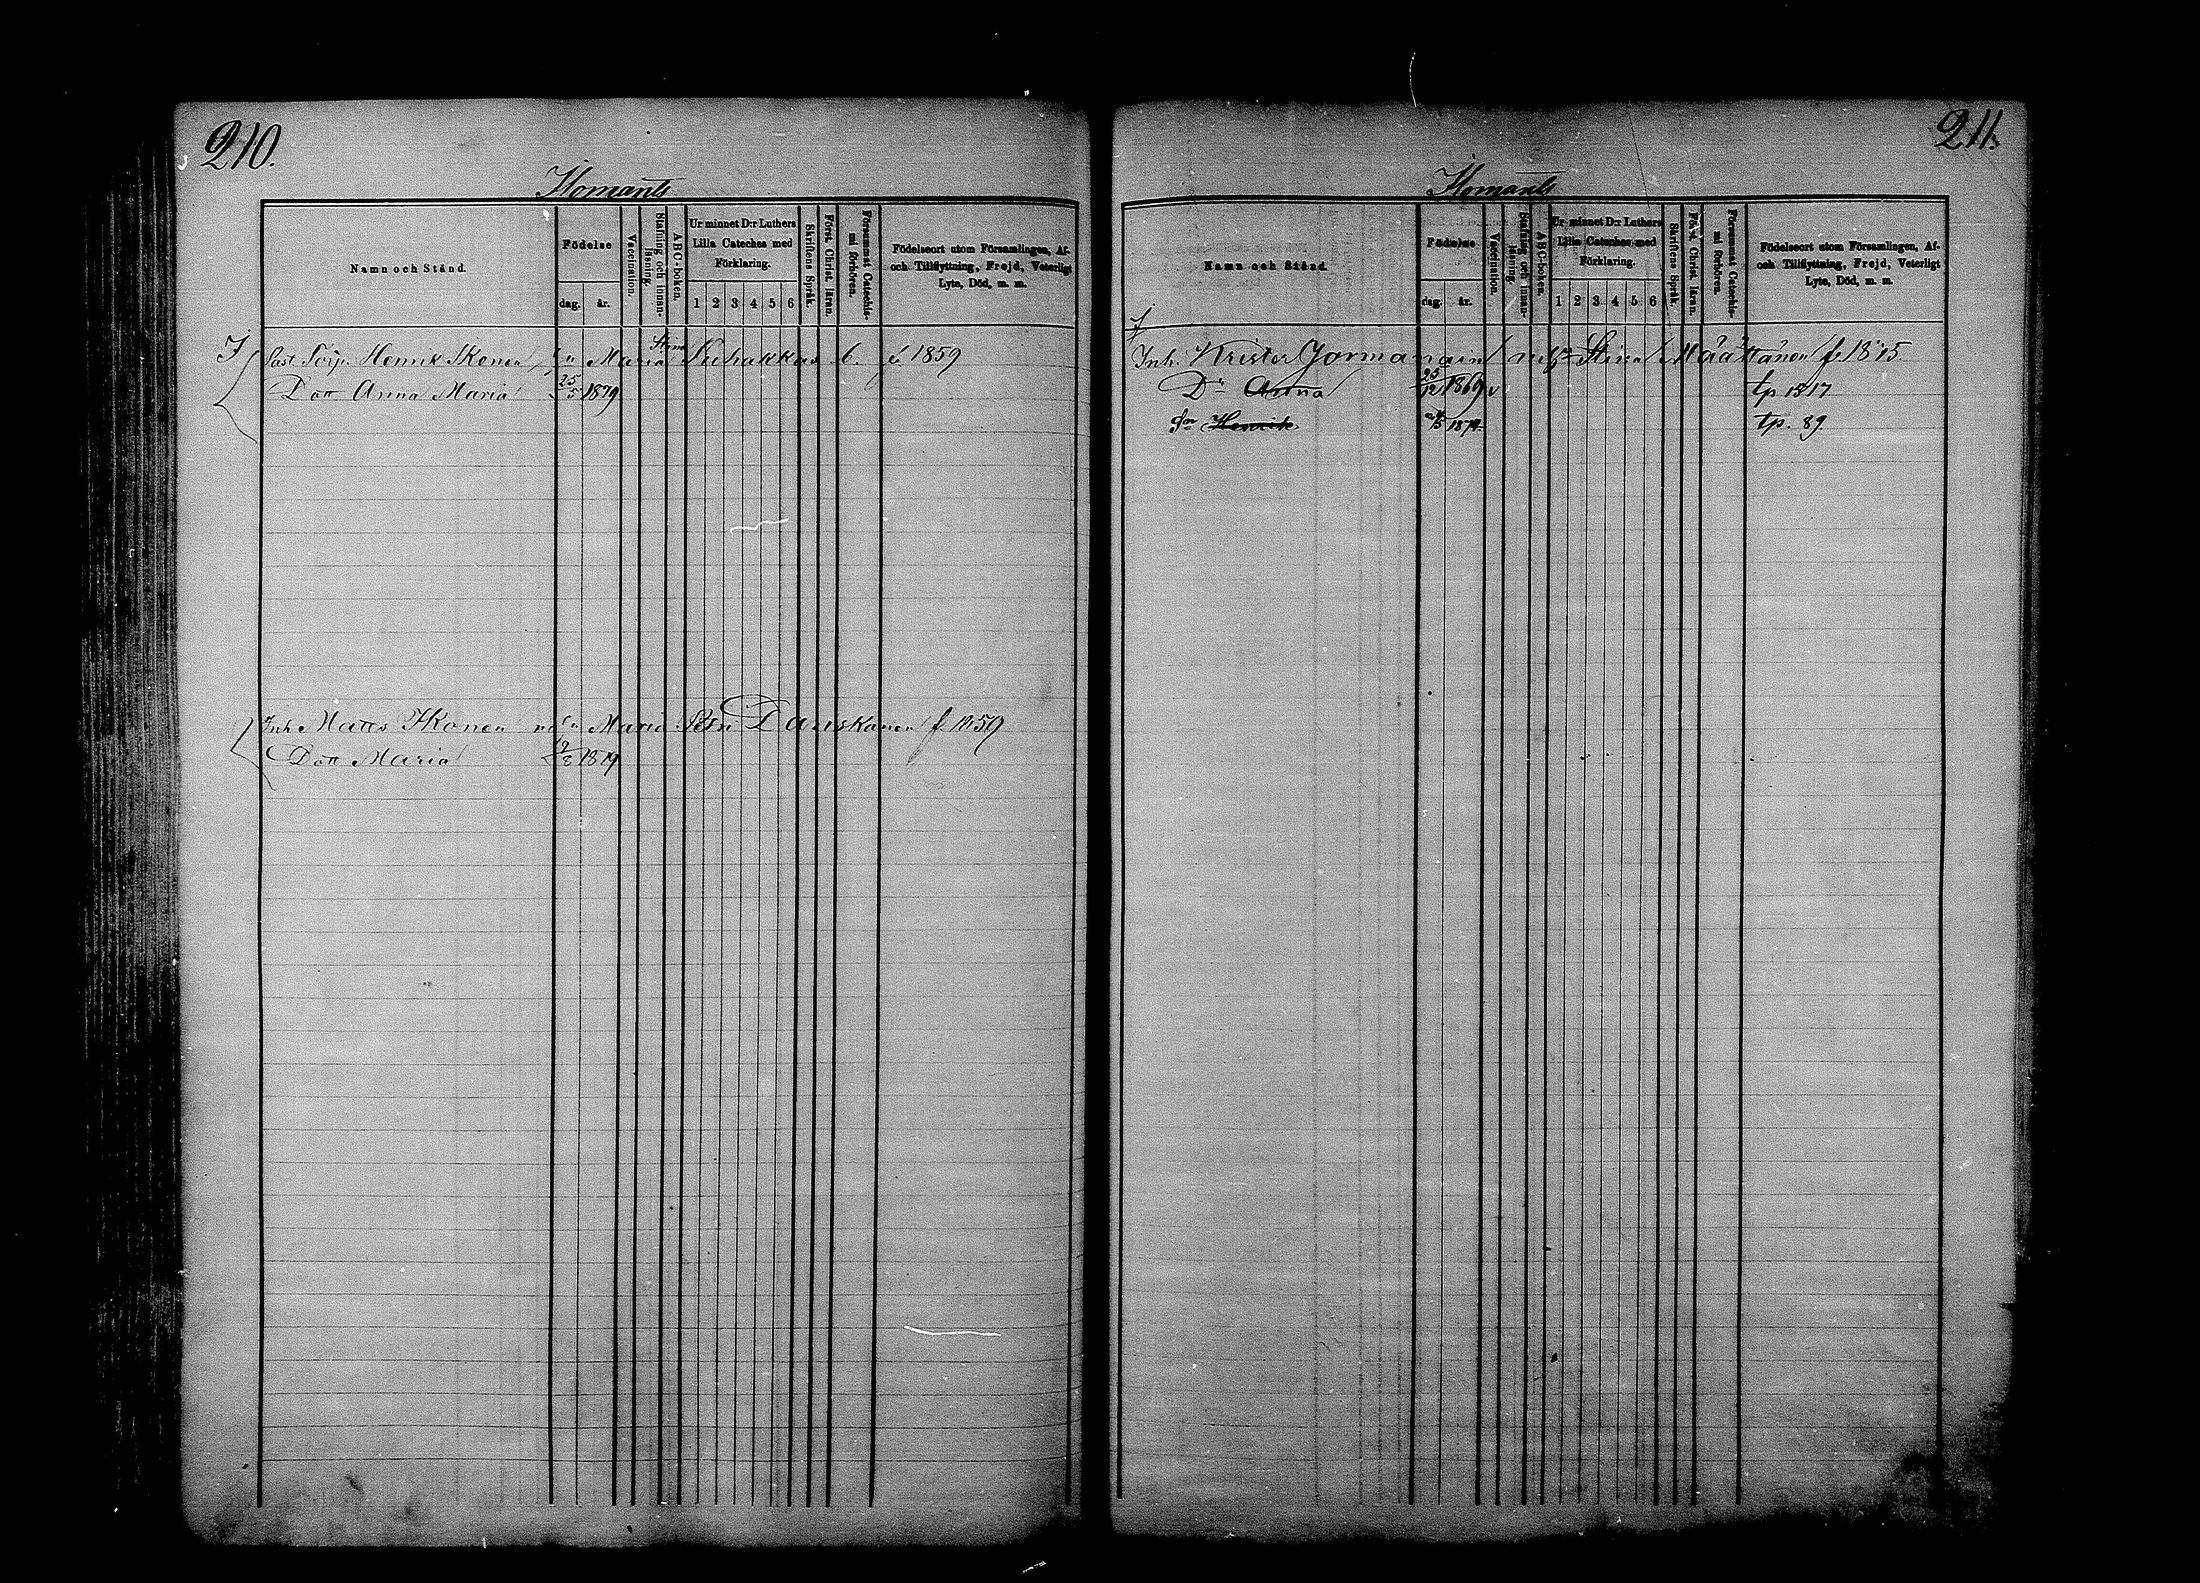 210.
Ilomants
Namn och Stånd.
Födelse
dag.
år.
Vaccination.
Stafning och innan-
läsning.
ABC-boken.
Ur minnet D:r Luthers
Lilla Cateches med
Förklaring.
1 2 3 4 5 6
Skriftens Språk.
Först. Christ. läran.
Försummat Catechis-
mi förhören.
Födelseort utom Församlingen, Af-
och Tillflyttning, Frejd, Veterligt
Lyte, Död, m. m.
Henrik Ikonen Maria 1859
Dott Anna Maria 25/5 1879
Inh Matts Ikonen Maria f. 1859
Dott Maria 1879
211.
Ilomants
Namn och Stånd.
Födelse
dag.
år.
Vaccination.
Stafning och innan-
läsning.
ABC-boken.
Ur minnet D:r Luthers
Lilla Cateches med
Förklaring.
1 2 3 4 5 6
Skriftens Språk.
Först. Christ. läran.
Försummat Catechis-
mi förhören.
Födelseort utom Församlingen, Af-
och Tillflyttning, Frejd, Veterligt
Lyte, Död, m. m.
Inh: Krister Jormanain Stina Määttänen
Dr Anna 25/12 1869 v tp
Sn Henrik tp. 89